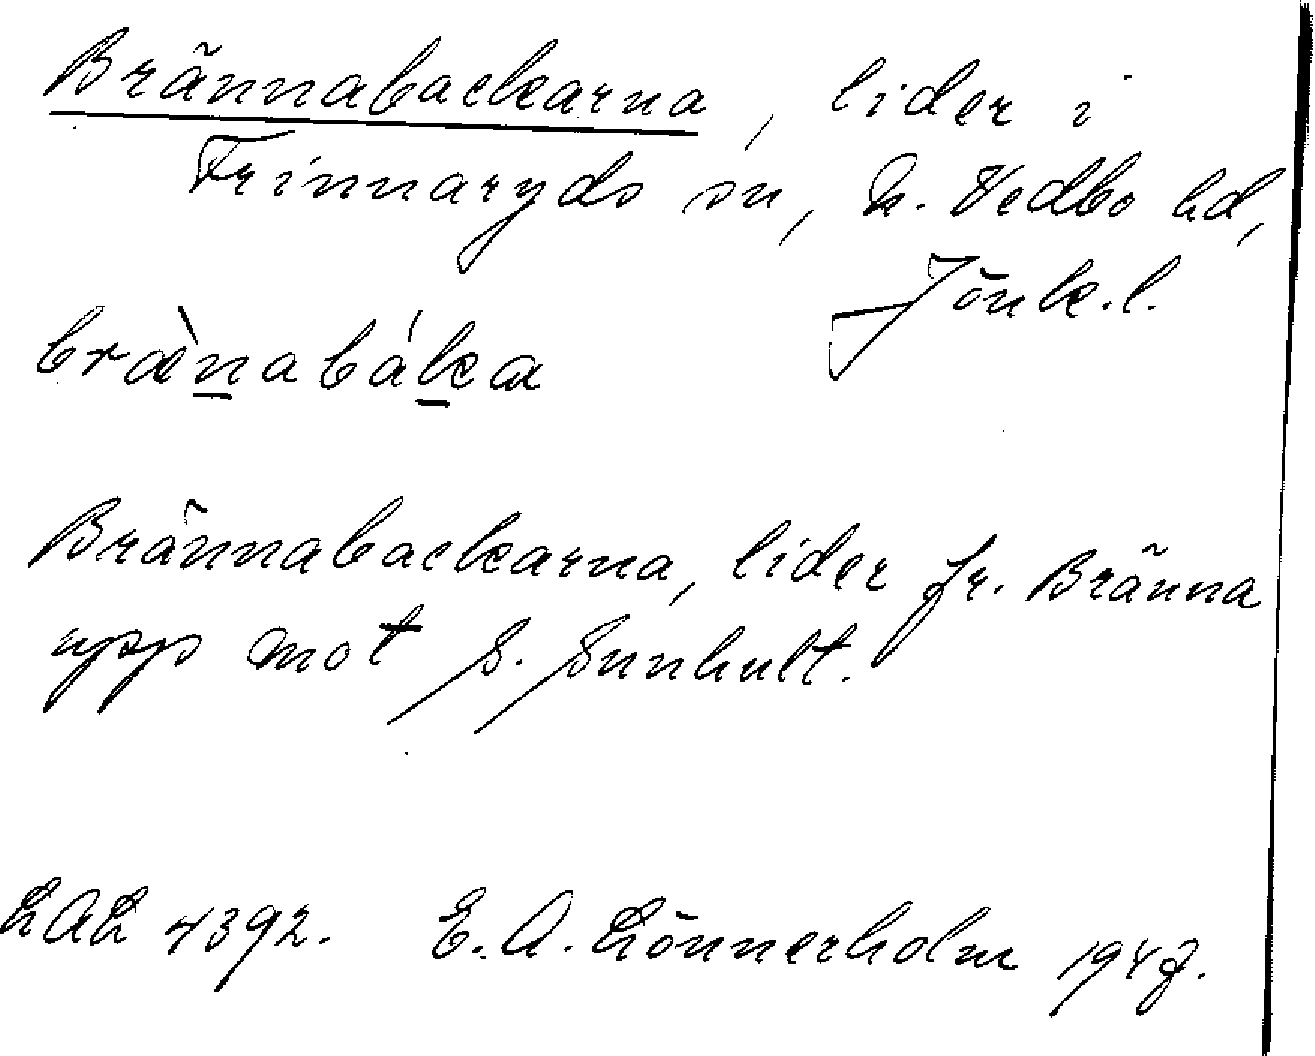 Brännabackarna, lider i
Frinnaryds sn, N. Vedbo hd,
Jönk. l.
bræ̀nabáka
Brännabackarna, lider fr. Bränna
upp mot S. Sunhult.
LAL 4392. E. A. Lönnerholm 1947.